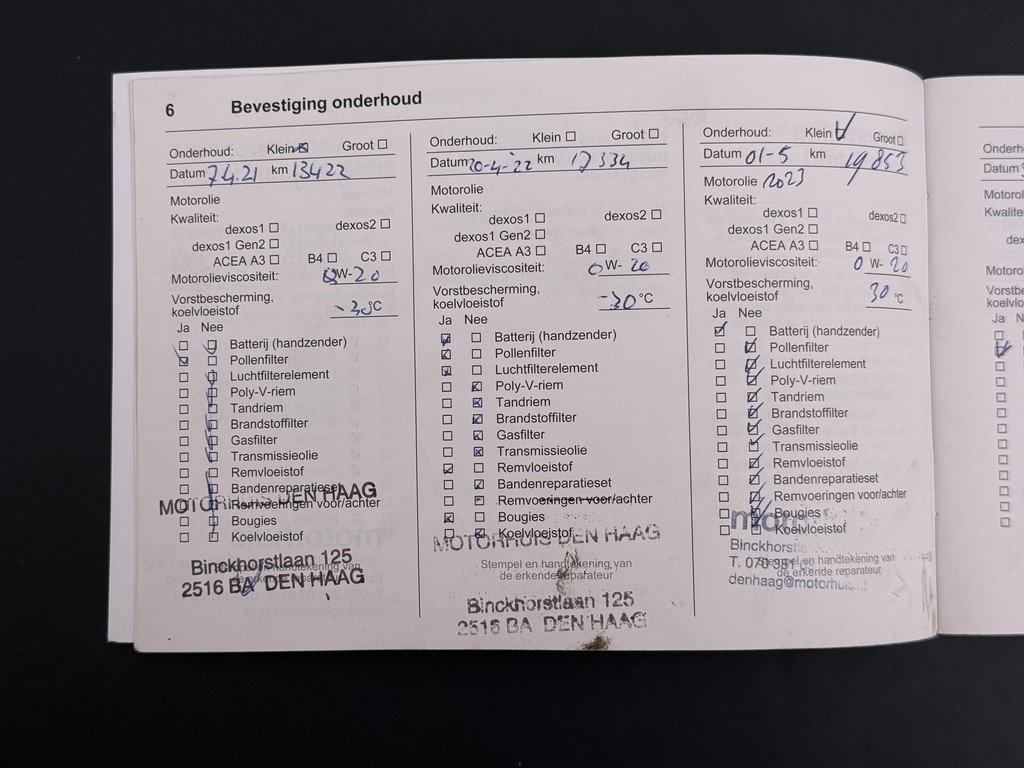 6 Bevestiging onderhoud
Onderhoud: Klein Groot
Datum 7.4.21 km 13422
Motorolie
Kwaliteit:
dexos1 dexos2
dexos1 Gen2
ACEA A3 B4 C3
Motorolieviscositeit: 0W-20
Vorstbescherming,
koelvloeistof -30°C
Ja Nee
Batterij (handzender)
Pollenfilter
Luchtfilterelement
Poly-V-riem
Tandriem
Brandstoffilter
Gasfilter
Transmissieolie
Remvloeistof
Bandenreparatieset
MOTORHUIS DEN HAAG
Remvoeringen voor/achter
Bougies
Koelvloeistof
Binckhorstlaan 125
2516 BA DEN HAAG
Onderhoud: Klein Groot
Datum 20-4-'22 km 17334
Motorolie
Kwaliteit:
dexos1 dexos2
dexos1 Gen2
ACEA A3 B4 C3
Motorolieviscositeit: 0W-20
Vorstbescherming,
koelvloeistof -30°C
Ja Nee
Batterij (handzender)
Pollenfilter
Luchtfilterelement
Poly-V-riem
Tandriem
Brandstoffilter
Gasfilter
Transmissieolie
Remvloeistof
Bandenreparatieset
Remvoeringen voor/achter
Bougies
Koelvloeistof
MOTORHUIS DEN HAAG
Stempel en handtekening van
de erkende reparateur
Binckhorstlaan 125
2516 BA DEN HAAG
Onderhoud: Klein Groot
Datum 01-5 km 19853
Motorolie 2023
Kwaliteit:
dexos1 dexos2
dexos1 Gen2
ACEA A3 B4 C3
Motorolieviscositeit: 0W-20
Vorstbescherming,
koelvloeistof 30°C
Ja Nee
Batterij (handzender)
Pollenfilter
Luchtfilterelement
Poly-V-riem
Tandriem
Brandstoffilter
Gasfilter
Transmissieolie
Remvloeistof
Bandenreparatieset
Remvoeringen voor/achter
Bougies
Koelvloeistof
Stempel en handtekening van
de erkende reparateur
T. 070 381